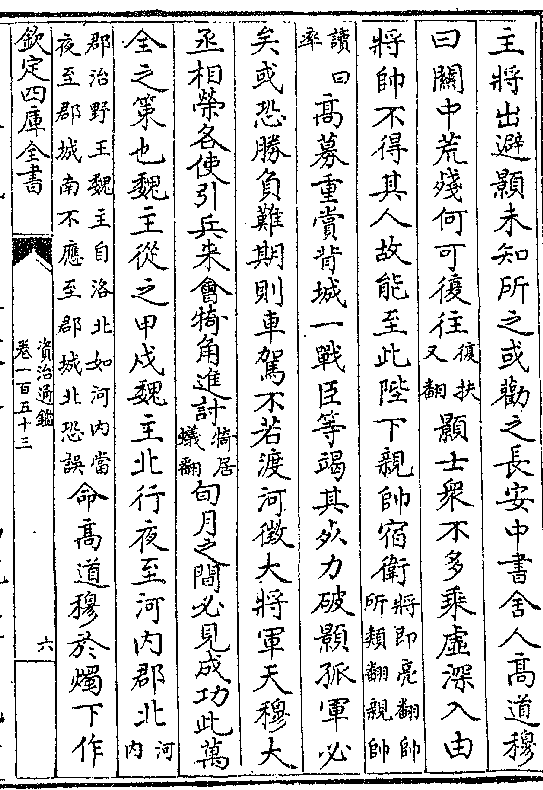 主將出避顥未知所之或勸之長安中書舍人髙道穆
曰關中荒殘何可復往復扶又翻顥士衆不多乗虛深入由
將帥不得其人故能至此陛下親帥宿衛將即亮翻帥所類翻親帥
讀曰率髙募重賞背城一戰臣等竭其死力破顥孤軍必
矣或恐勝負難期則車駕不若渡河徴大將軍天穆大
丞相榮各使引兵来會犄角進討犄居蟻翻旬月之間必見成功此萬
全之策也魏主從之甲戌魏主北行夜至河内郡北河内
郡治野王魏主自洛北如河内當夜至郡城南不應至郡城北恐誤命髙道穆於燭下作
欽定四庫全書
資治通鑑
卷一百五十三
六